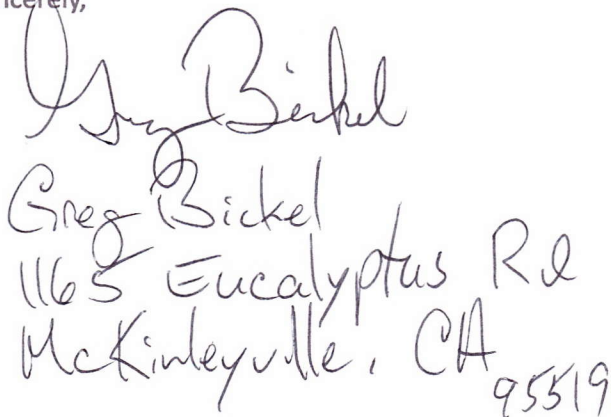 ncerely,
Greg Bickel
Greg Bickel
1165 Eucalyptus Rd
McKinleyville, CA
95519